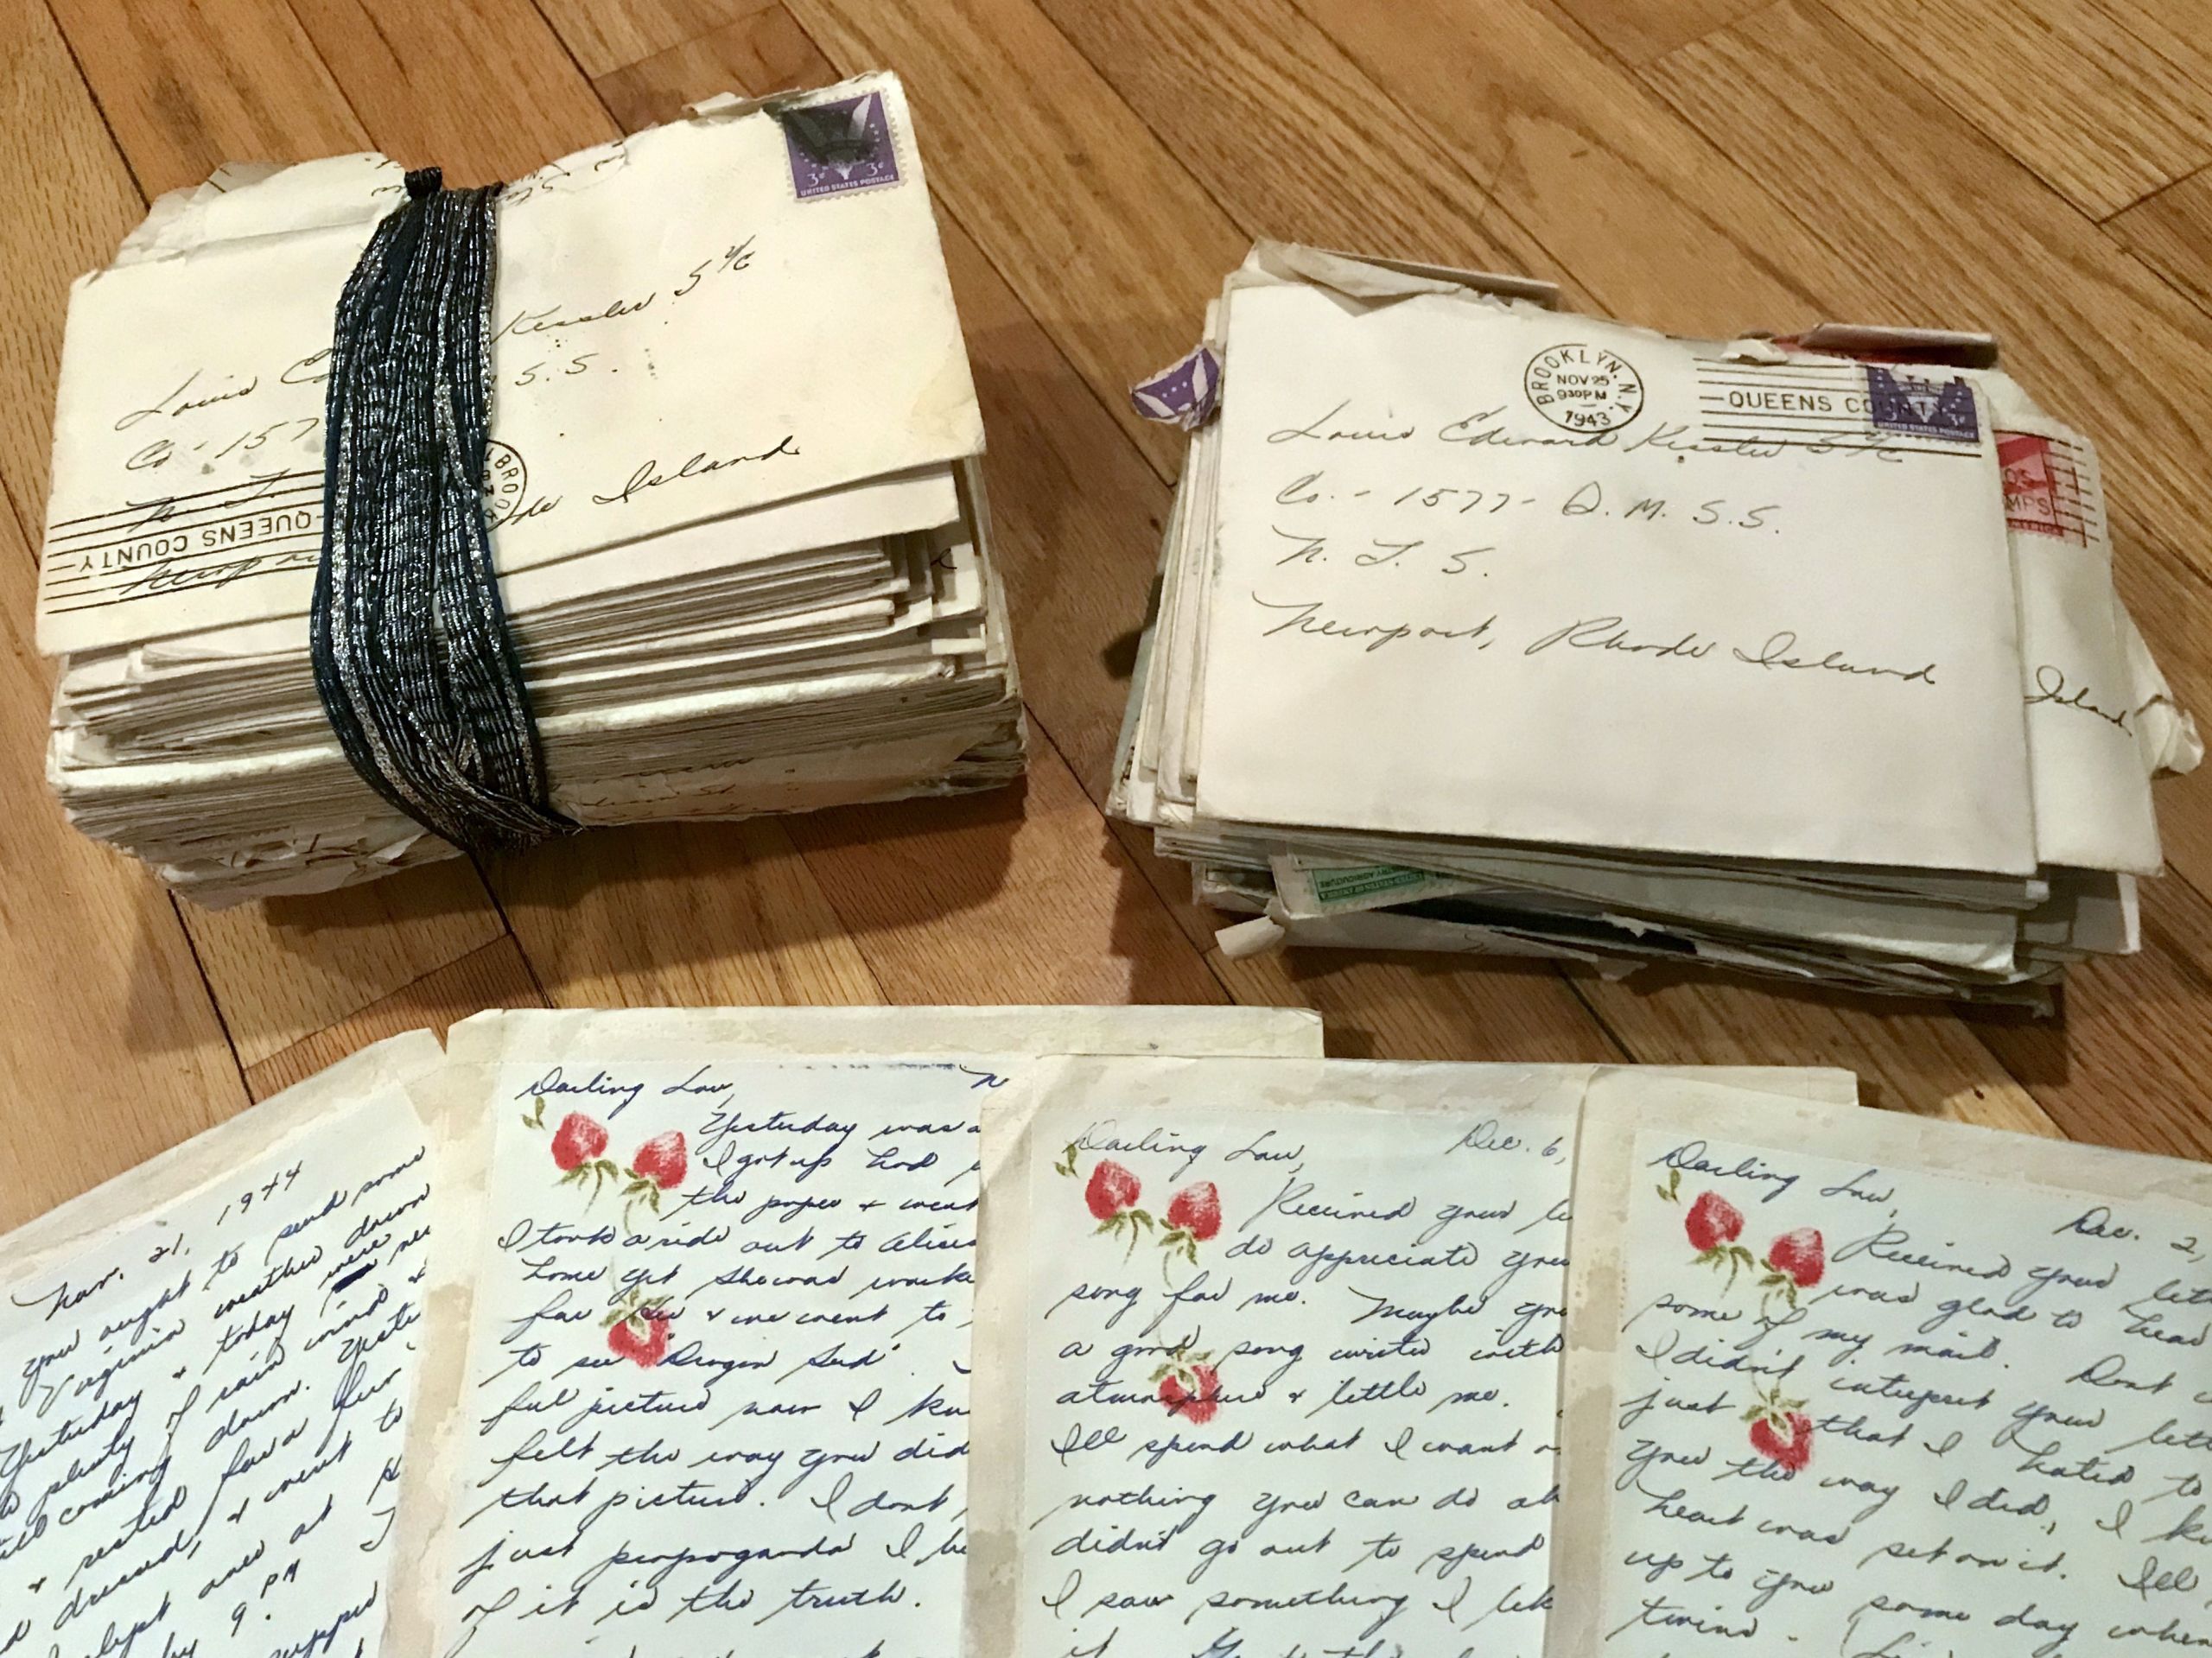 3¢ 3¢
UNITED STATES POSTAGE
Louis Kessler S 2/c
Co - 157 S.S.
Island
BROOK
QUEENS COUNTY
BROOKLYN, N.Y.
NOV 25
9 30 PM
1943
QUEENS COUNTY
UNITED STATES POSTAGE
Louis Edward Kessler S 2/c
Co. - 1577 - Q. M. S. S.
N. T. S.
Newport, Rhode Island
Island
Nov. 21, 1944
you ought to send some
Virginia weather down
Yesterday + today were
plenty of rain wind +
coming down. Yeste
+ rested for a
dressed, + went to
slept
by 9. PM
Darling Lou,
Yesterday was a
I got up had
the paper + went
I took a ride out to Alice
home yet she was
for + we went to
to see "Dragon Seed".
ful picture now I kn
felt the way you did
that picture. I dont
just propoganda I be
of it is the truth.
Darling Lou, Dec. 6,
Received your le
do appreciate you
song for me. Maybe you
a good song write with
atmosphere + little me.
Ill spend what I want
nothing you can do ab
didn't go out to spend
I saw something I lik
Darling Lou,
Dec. 2,
Received your let
was glad to hear
some of my mail. Dont
I didn't interpret your lett
just that I hated to
you the way I did, I k
heart was set on it. Ill
up to you some day when
twins.